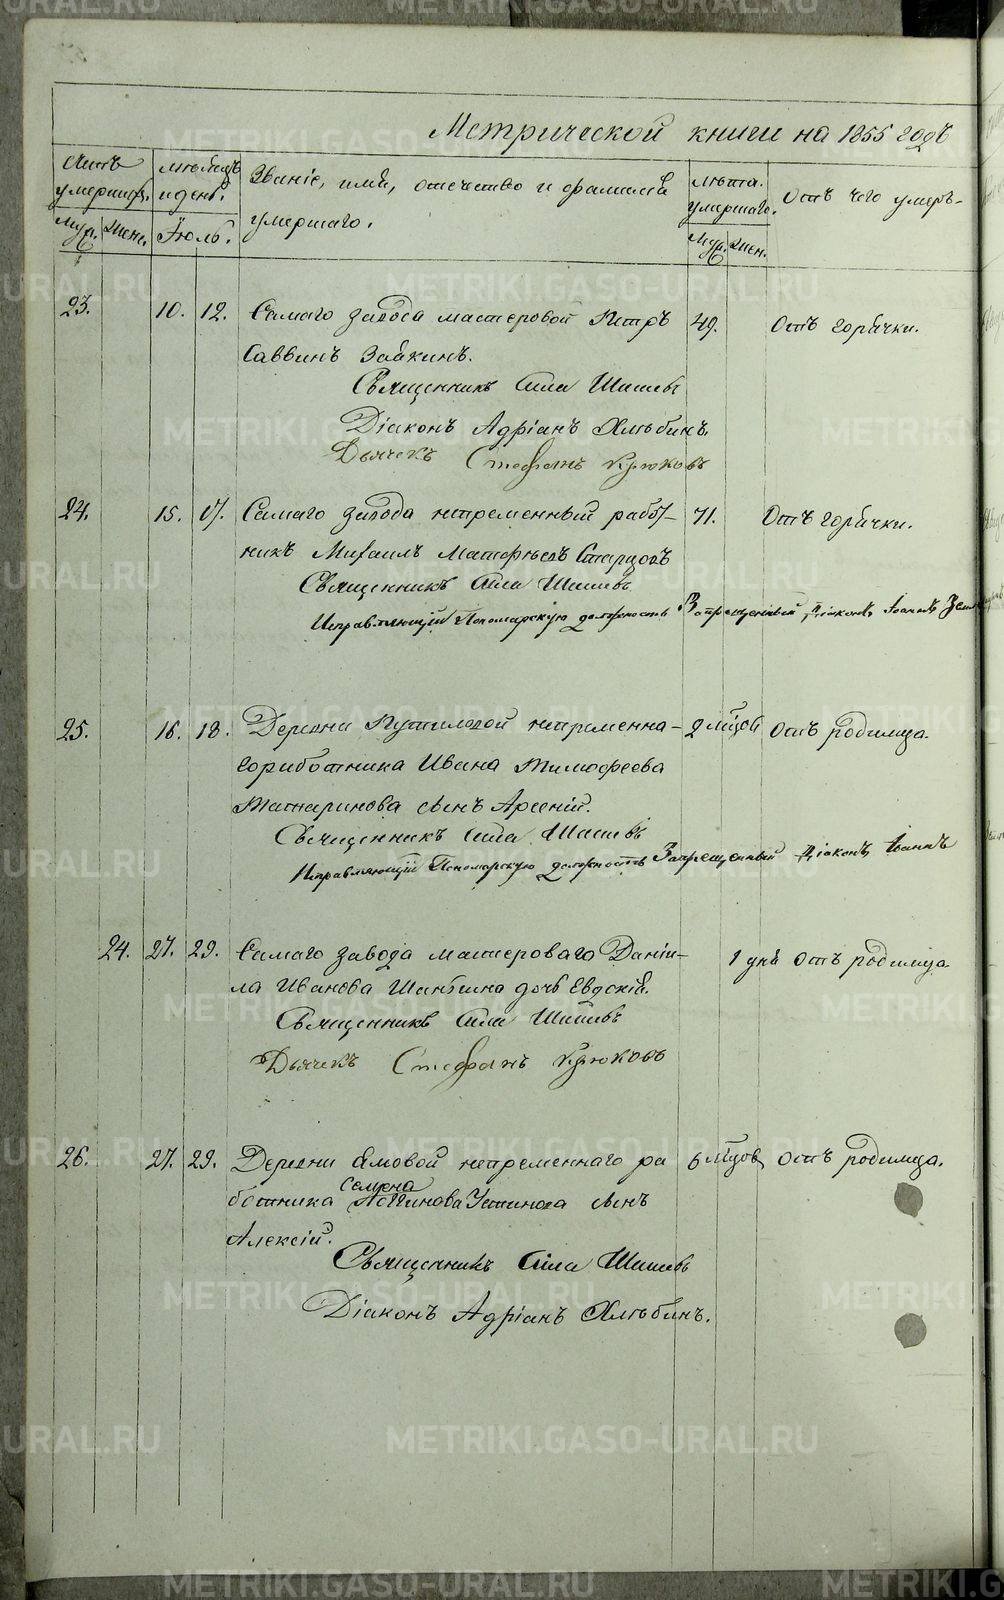 Метрической книги на 1855 годъ
Счетъ умершихъ. Мѣсяцъ и день. Званіе, имя, отчество и фамилія умершаго. Лѣта умершаго. Отъ чего умеръ.
Муж. Жен. Іюль. Муж. Жен.
23. 10. 12. Самаго завода мастеровой Петръ 49. Отъ горячки.
Саввинъ Зайкинъ.
Священникъ Сила Шишевъ
Діаконъ Адріанъ Хлѣбинъ.
Дьячекъ Стефанъ Крюковъ
24. 15. 17. Самаго завода непременный работ- 71. Отъ горячки.
никъ Михаилъ Матфѣевъ Старцовъ
Священникъ Сила Шишевъ
Исправляющій Пономарскую должность Запрещенный Діаконъ Іоаннъ
25. 16. 18. Деревни Путиловой непременна- 2 мѣсяцовъ Отъ родимца.
го работника Ивана Тимофеева
Татаринова сынъ Арсеній.
Священникъ Сила Шишевъ
Исправляющій Пономарскую должность Запрещенный Діаконъ Іоаннъ
24. 27. 29. Самаго завода мастероваго Даніи- 1 дня Отъ родимца.
ла Иванова дочь Евдокія.
Священникъ Сила Шишевъ
Дьячекъ Стефанъ Крюковъ
26. 27. 29. Деревни Ямовой непременнаго ра 6 мѣсяцовъ Отъ родимца.
Семена
ботника Устинова сынъ
Алексій.
Священникъ Сила Шишевъ
Діаконъ Адріанъ Хлѣбинъ.
METRIKI.GASO-URAL.RU